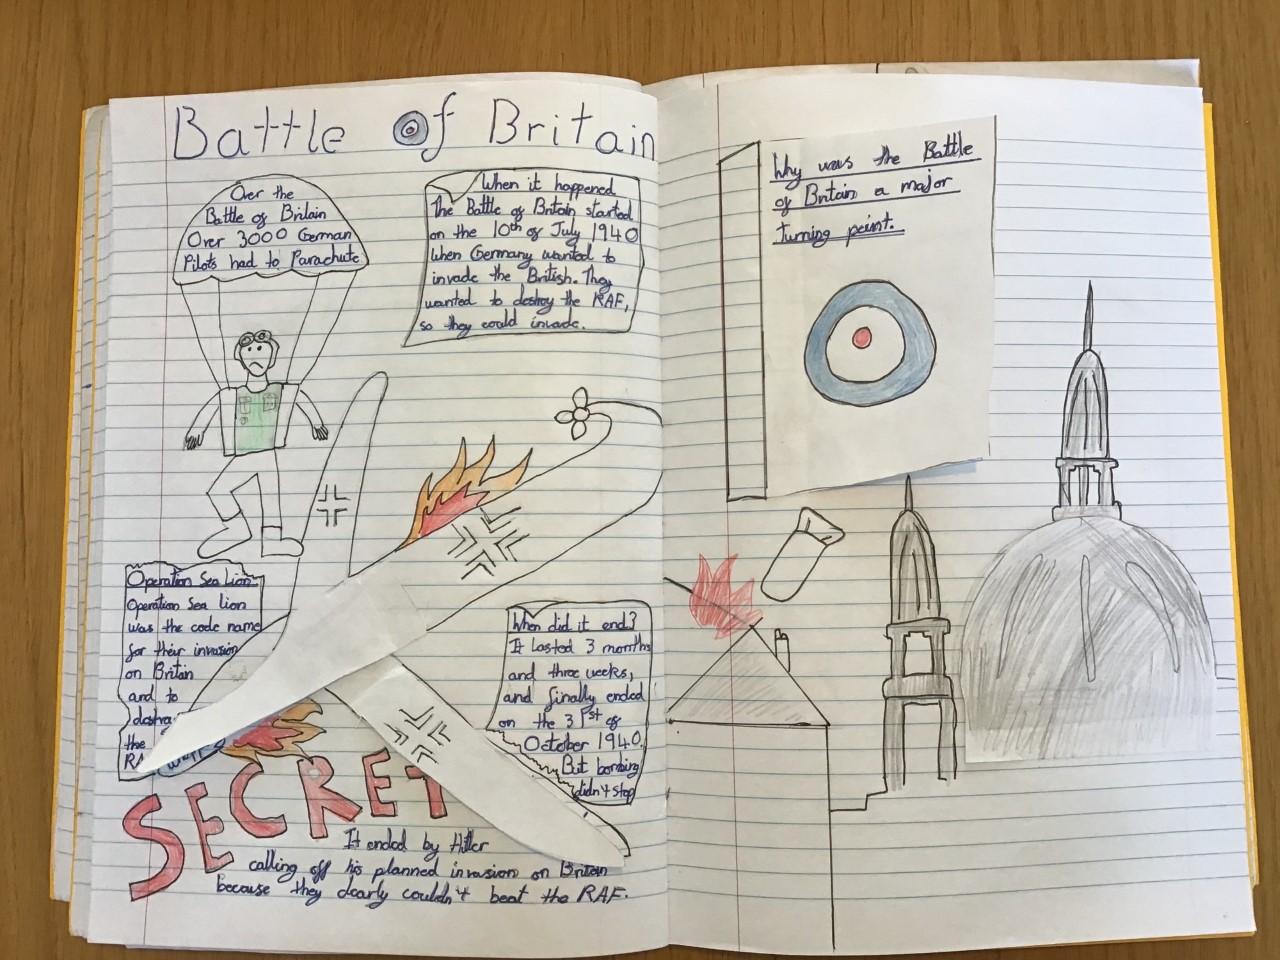 Battle of Britain
Over the
Battle of Britain
Over 3000 German
Pilots had to Parachute
When it happened
The Battle of Britain started
on the 10th of July 1940
when Germany wanted to
invade the British. They
wanted to destroy the RAF,
so they could invade.
Operation Sea Lion
Operation Sea lion
was the code name
for their invasion
on Britain
and to
the
When did it end?
It lasted 3 months
and three weeks,
and finally ended
on the 31st of
October 1940.
But bombing
didn't stop
SECRET
It ended by Hitler
calling off his planned invasion on Britain
because they clearly couldn't beat the RAF.
Why was the Battle
of Britain a major
turning point.